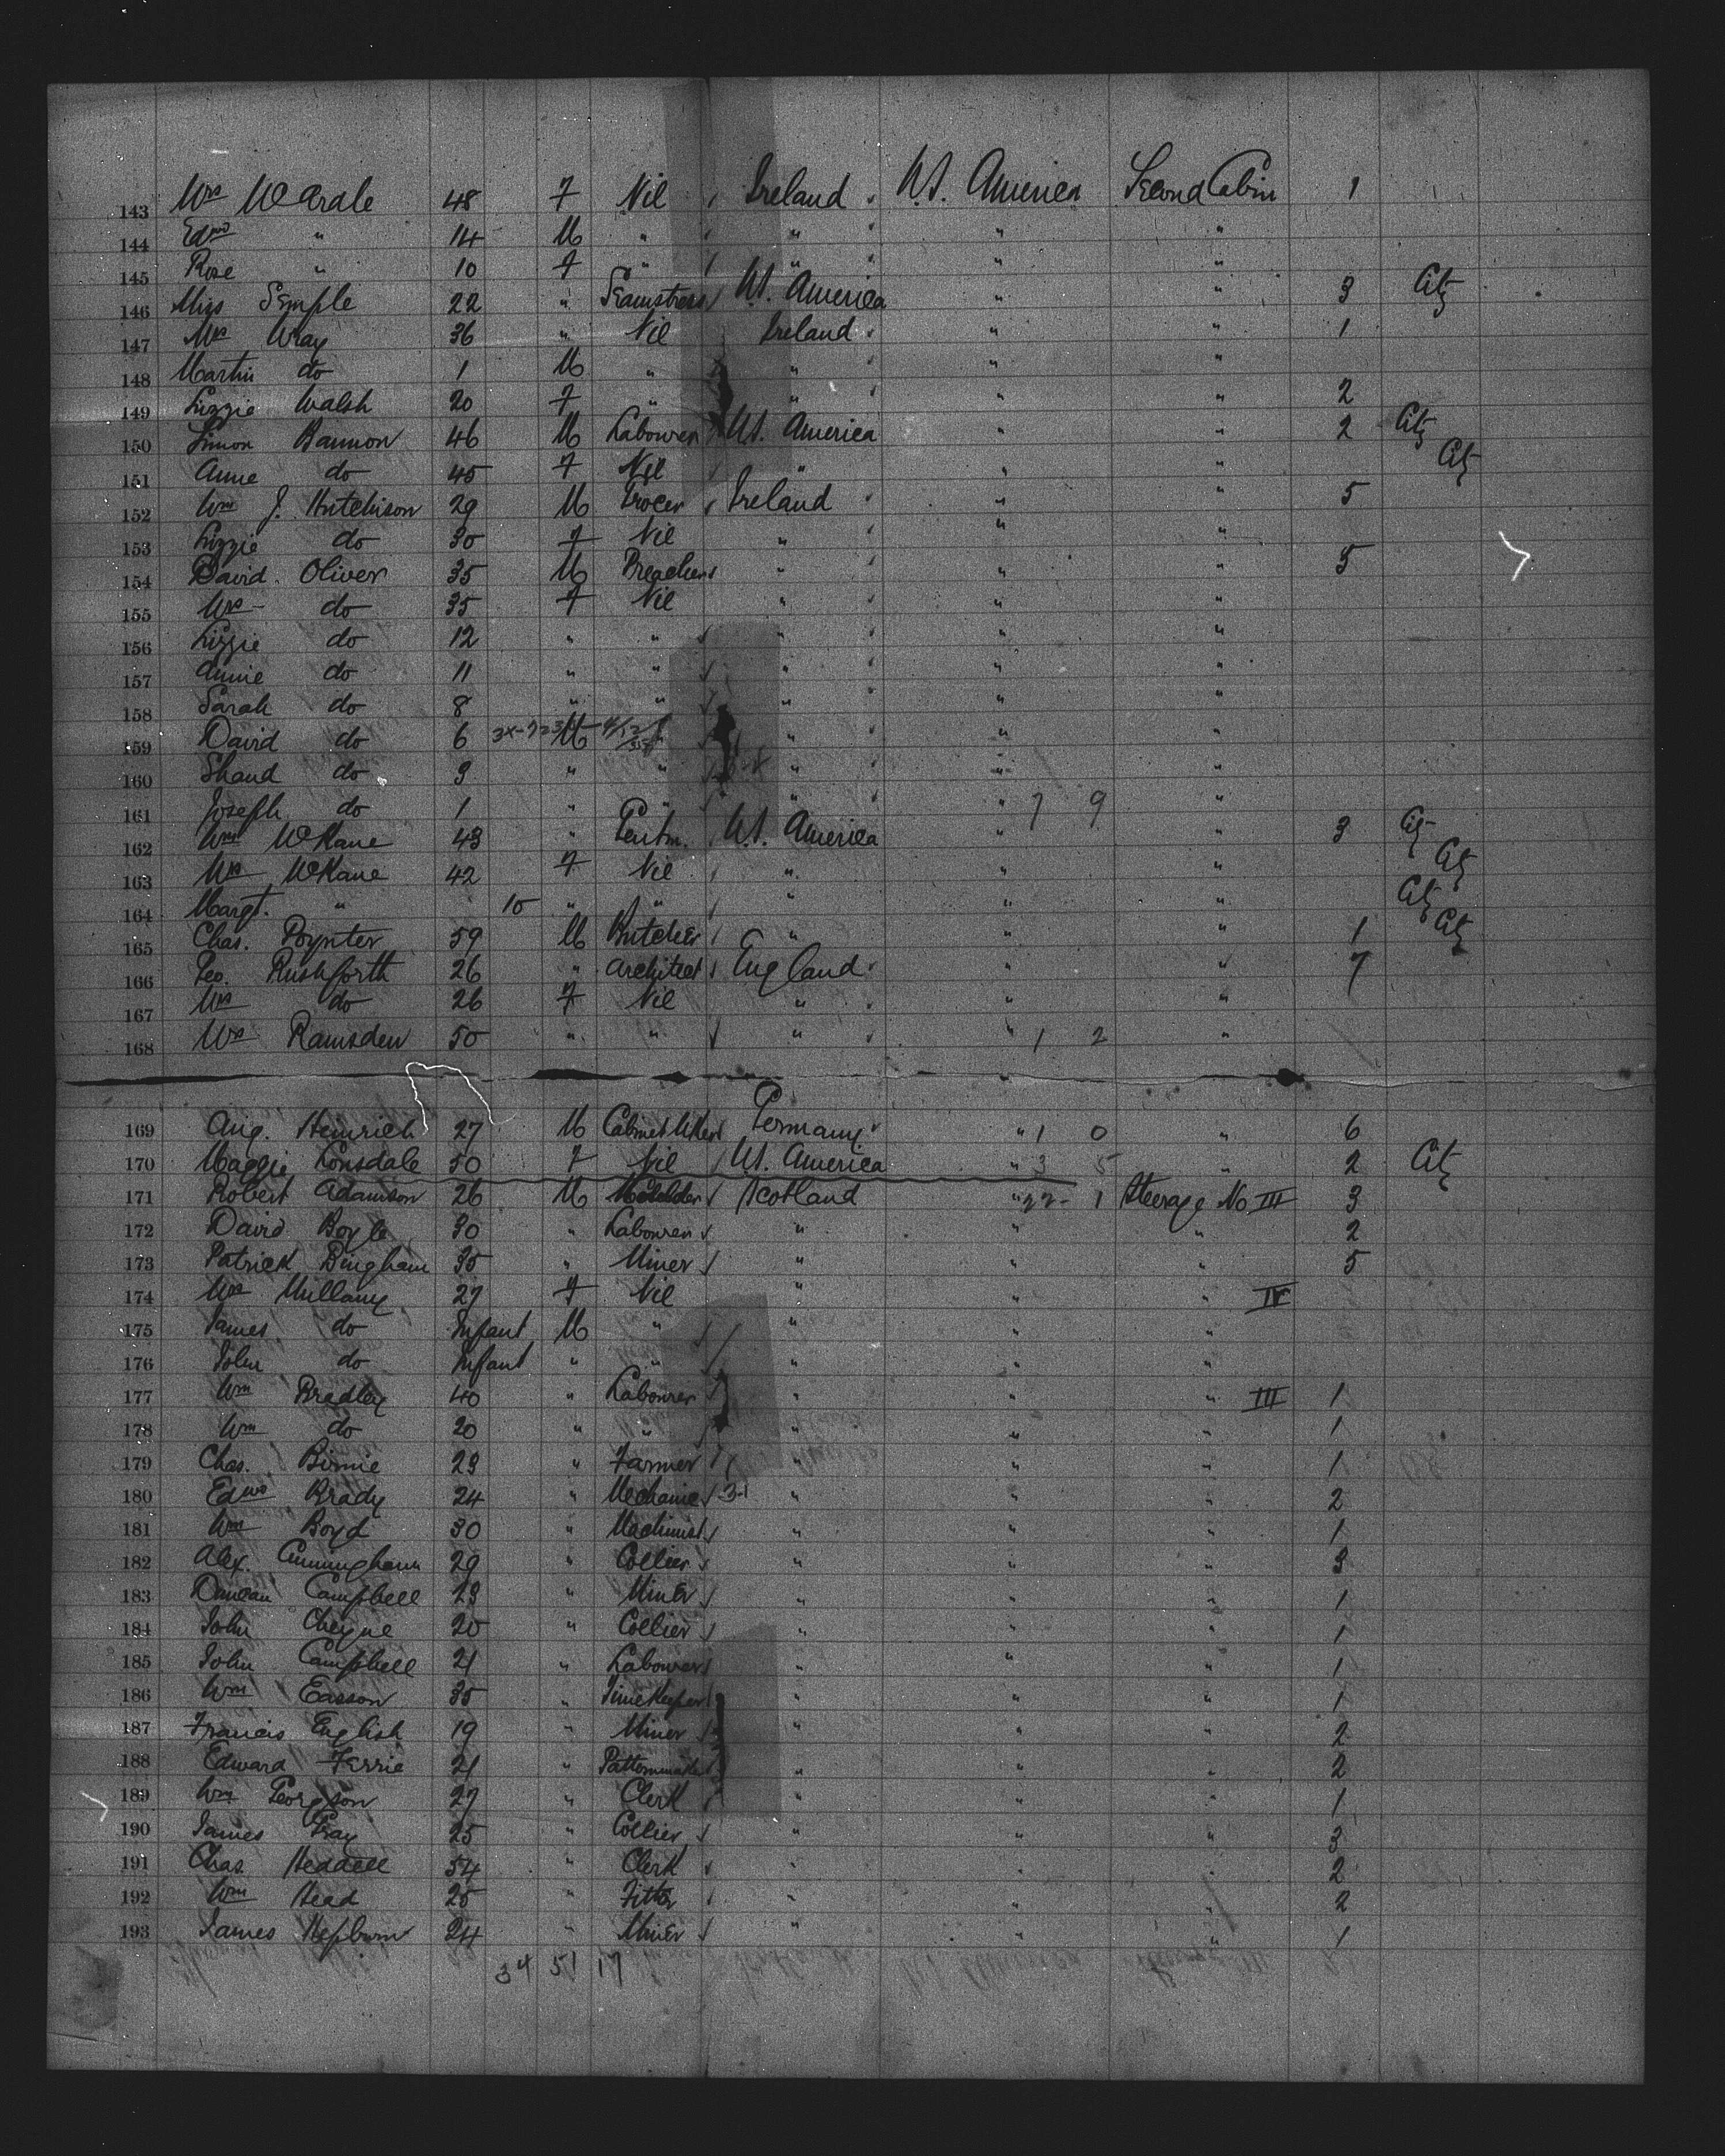 143 Mrs McArdle 48 F Nil Ireland U.S. America Second Cabin 1
144 Edwd " 14 M " " " "
145 Rose " 10 F " " " "
146 Miss Semple 22 " Seamstress U.S. America " " 3 Citz
147 Mrs Wray 36 " Nil Ireland " " 1
148 Martin do 1 M " " " "
149 Lizzie Walsh 20 F " " " " 2
150 Simon Bannon 46 M Labourer U.S. America " " 2 Citz
151 Anne do 45 F Nil " " " Citz
152 Wm J. Hutchison 29 M Grocer Ireland " " 5
153 Lizzie do 30 F Nil " " "
154 David Oliver 35 M Preacher " " " 5
155 Mrs do 35 F Nil " " "
156 Lizzie do 12 " " " " "
157 Annie do 11 " " " " "
158 Sarah do 8 " " " " "
159 David do 6 M " " "
160 Shand do 3 " " " " "
161 Joseph do 1 " " " " 7 9 "
162 Wm McKane 43 " Gentm. U.S. America " " 3 Citz
163 Mrs McKane 42 F Nil " " " Citz
164 Margt. " 10 " " " " " Citz
165 Chas. Poynter 59 M Butcher " " " 1 Citz
166 Geo. Rushforth 26 " Architect England " " 7
167 Mrs do 26 F Nil " " "
168 Mrs Ramsden 50 " " " " 1 2 "
169 Aug. Heinrich 27 M Cabinet Mker Germany " 1 0 " 6
170 Maggie Lonsdale 50 F Nil U.S. America " 3 5 " 2 Citz
171 Robert Adamson 26 M Moulder Scotland " 22 - 1 Steerage No III 3
172 David Boyle 30 " Labourer " " " 2
173 Patrick Bingham 35 " Miner " " " 5
174 Mrs Mullany 27 F Nil " " " IV
175 James do Infant M " " " "
176 John do Infant " " " " "
177 Wm Bradley 40 " Labourer " " " III 1
178 Wm do 20 " " " " " 1
179 Chas. Birnie 23 " Farmer " " " 1
180 Edwd Brady 24 " Mechanic " " " 2
181 Wm Boyd 30 " Machinist " " " 1
182 Alex. Cunningham 29 " Collier " " " 3
183 Duncan Campbell 23 " Miner " " " 1
184 John Cheyne 20 " Collier " " " 1
185 John Campbell 21 " Labourer " " " 1
186 Wm Easson 35 " Timekeeper " " " 1
187 Francis English 19 " Miner " " " 2
188 Edward Ferrie 21 " Patternmaker " " " 2
189 Wm Georgeson 27 " Clerk " " " 1
190 James Gray 25 " Collier " " " 3
191 Chas. Heddell 54 " Clerk " " " 2
192 Wm Head 25 " Fitter " " " 2
193 James Hepburn 24 " Miner " " " 1
34 51 17